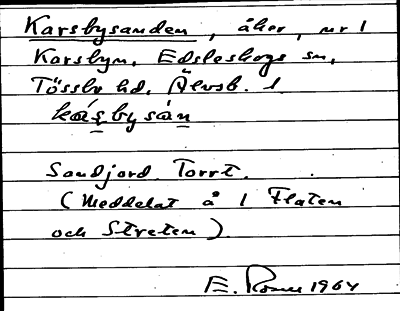 Karsbysanden, åker, nr 1
Karsbyn, Edsleskogs sn,
Tössbo hd, Älvsb. l.
kásbysán
Sandjord. Torrt.
(Meddelat å 1 Flaten
och Streten).
E. 1964